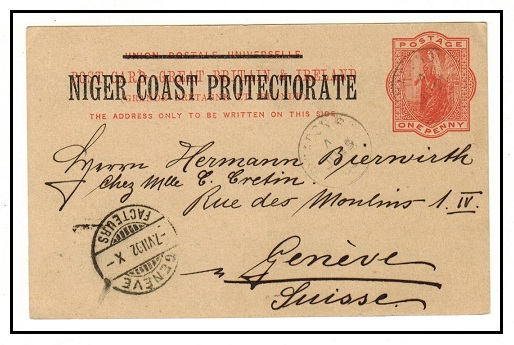 UNION POSTALE UNIVERSELLE
POST CARD GREAT BRITAIN & IRELAND
NIGER COAST PROTECTORATE
(GRANDE BRETAGNE ET IRLANDE)
THE ADDRESS ONLY TO BE WRITTEN ON THIS SIDE.
POSTAGE
ONE PENNY
Herrn Hermann Bierwirth
Chez Mlle C. Cretin
Rue des Moulins 1. IV
Genève
Suisse.
GENÈVE
-7.VII.02 X-
FACTEURS